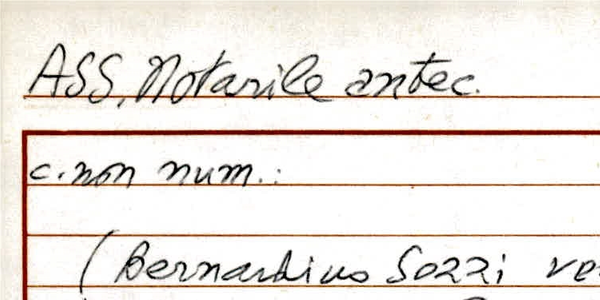 ASS, Notarile antec.
c. non num.:
(Bernardino Sozzi ve